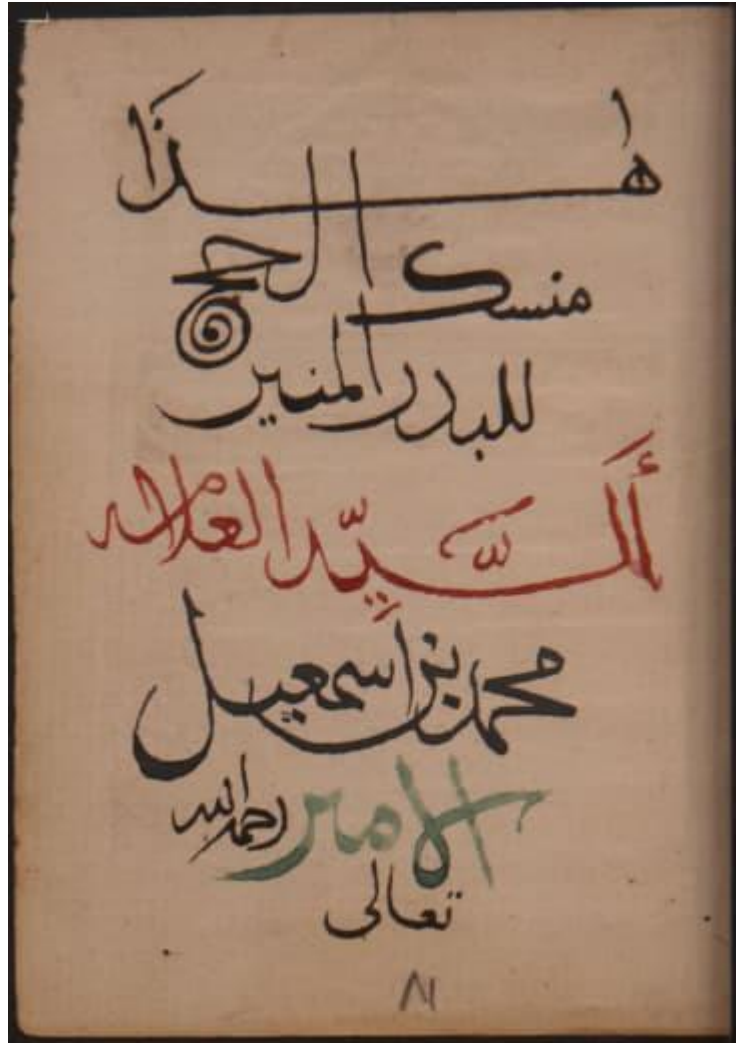 هٰذَا
منسك الحج
للبدر المنير
أَلسَّيِّد العلامه
محمد بن اسمعيل
الامير رحمه الله
تعالى
٨١